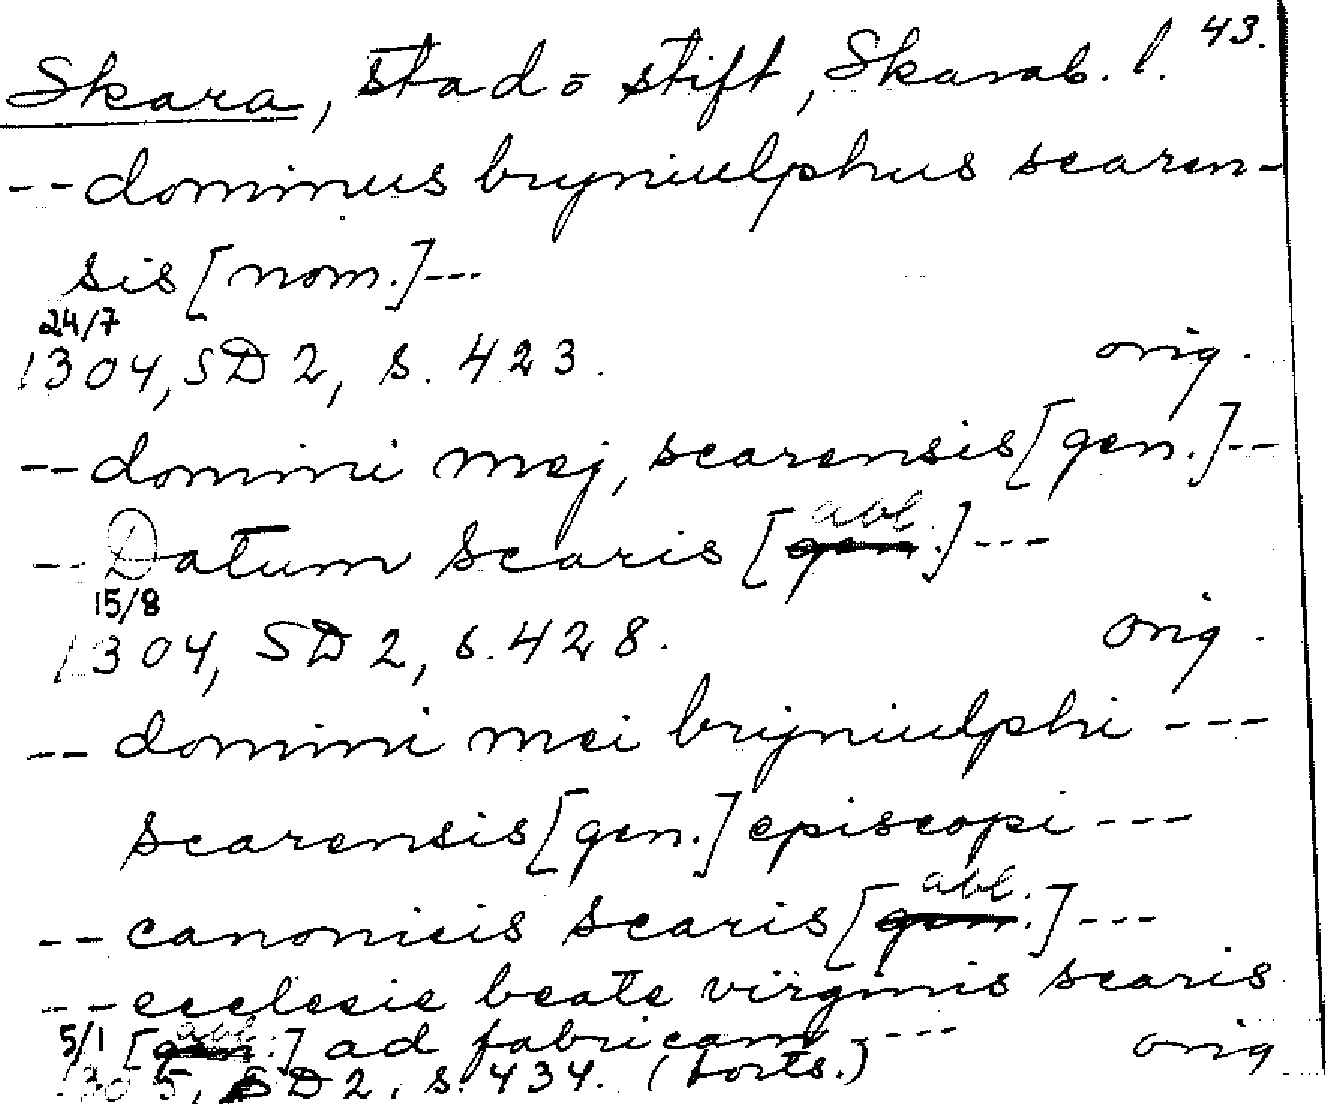 Skara, stad o stift, Skarab. l. 43.
-- dominus bryniulphus scaren-
sis [nom.] ---
24/7
1304, SD 2, s. 423. orig.
-- domini mej, scarensis [gen.] --
-- Datum Scaris [gen abl.] ---
15/8
1304, SD 2, s. 428. orig.
-- domini mei brijniulphi ---
scarensis [gen.] episcopi ---
-- canonicis scaris [gen. abl.] ---
-- ecclesie beate virginis scaris
5/1 [gen. abl.] ad fabricam ---
1305, SD 2, s. 434. (forts.) orig